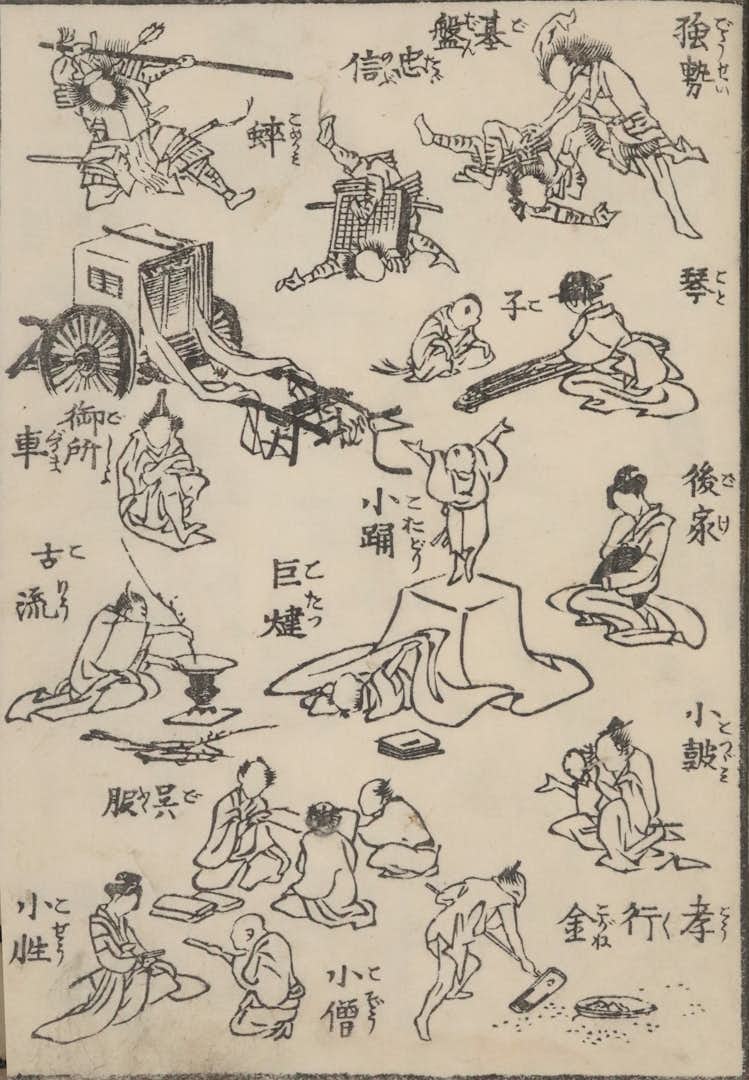 強勢
ごうせい
基盤
ごばん
忠信
たゞのぶ
蟀
琴
こと
子
こ
御所
ごしょ
車
ぐるま
後家
ごけ
小踊
こおどり
巨燵
こたつ
古流
こりう
小鼓
こつゞみ
呉服
ごふく
孝行
金
こがね
小僧
こぞう
小性
こせう